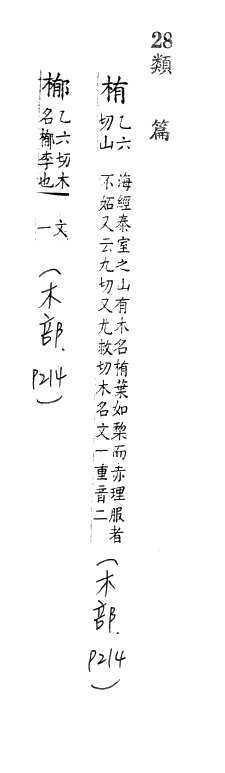 28
類篇
栯 乙六切山
海經泰室之山有木名栯葉如棃而赤理服者
不妬又云九切又尤救切木名文一重音二
(木部. P214)
楲 乙六切木名楲李也 文一
(木部. P214)